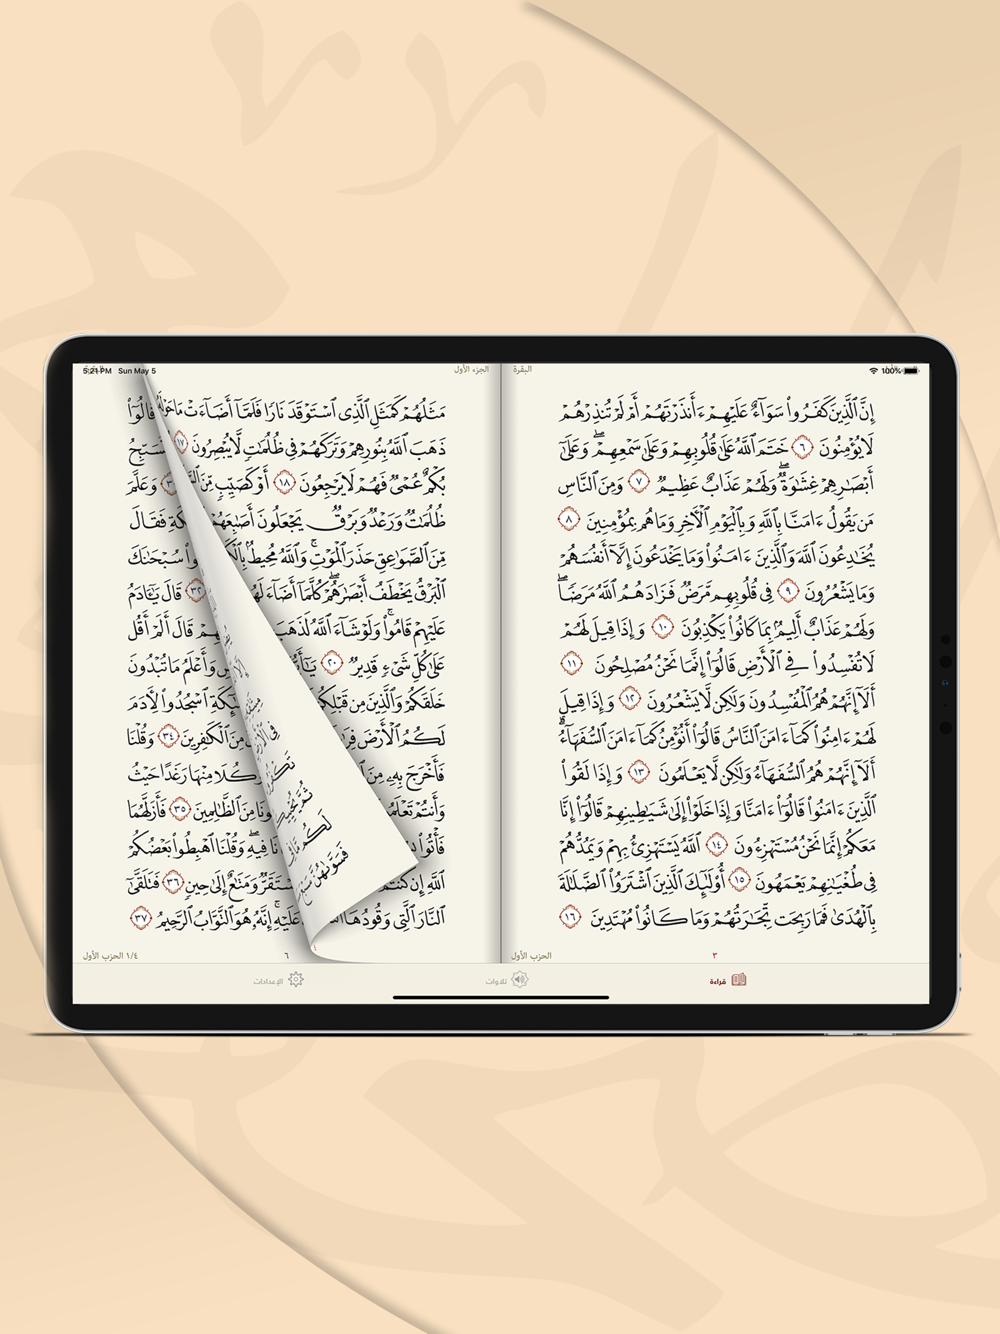 5:21 PM Sun May 5
100%
البقرة
إِنَّ ٱلَّذِينَ كَفَرُوا۟ سَوَآءٌ عَلَيْهِمْ ءَأَنذَرْتَهُمْ أَمْ لَمْ تُنذِرْهُمْ
لَا يُؤْمِنُونَ ٦ خَتَمَ ٱللَّهُ عَلَىٰ قُلُوبِهِمْ وَعَلَىٰ سَمْعِهِمْ ۖ وَعَلَىٰٓ
أَبْصَـٰرِهِمْ غِشَـٰوَةٌ ۖ وَلَهُمْ عَذَابٌ عَظِيمٌ ٧ وَمِنَ ٱلنَّاسِ
مَن يَقُولُ ءَامَنَّا بِٱللَّهِ وَبِٱلْيَوْمِ ٱلْـَٔاخِرِ وَمَا هُم بِمُؤْمِنِينَ ٨
يُخَـٰدِعُونَ ٱللَّهَ وَٱلَّذِينَ ءَامَنُوا۟ وَمَا يَخْدَعُونَ إِلَّآ أَنفُسَهُمْ
وَمَا يَشْعُرُونَ ٩ فِى قُلُوبِهِم مَّرَضٌ فَزَادَهُمُ ٱللَّهُ مَرَضًا ۖ
وَلَهُمْ عَذَابٌ أَلِيمٌۢ بِمَا كَانُوا۟ يَكْذِبُونَ ١٠ وَإِذَا قِيلَ لَهُمْ
لَا تُفْسِدُوا۟ فِى ٱلْأَرْضِ قَالُوٓا۟ إِنَّمَا نَحْنُ مُصْلِحُونَ ١١
أَلَآ إِنَّهُمْ هُمُ ٱلْمُفْسِدُونَ وَلَـٰكِن لَّا يَشْعُرُونَ ١٢ وَإِذَا قِيلَ
لَهُمْ ءَامِنُوا۟ كَمَآ ءَامَنَ ٱلنَّاسُ قَالُوٓا۟ أَنُؤْمِنُ كَمَآ ءَامَنَ ٱلسُّفَهَآءُ ۗ
أَلَآ إِنَّهُمْ هُمُ ٱلسُّفَهَآءُ وَلَـٰكِن لَّا يَعْلَمُونَ ١٣ وَإِذَا لَقُوا۟
ٱلَّذِينَ ءَامَنُوا۟ قَالُوٓا۟ ءَامَنَّا وَإِذَا خَلَوْا۟ إِلَىٰ شَيَـٰطِينِهِمْ قَالُوٓا۟ إِنَّا
مَعَكُمْ إِنَّمَا نَحْنُ مُسْتَهْزِءُونَ ١٤ ٱللَّهُ يَسْتَهْزِئُ بِهِمْ وَيَمُدُّهُمْ
فِى طُغْيَـٰنِهِمْ يَعْمَهُونَ ١٥ أُو۟لَـٰٓئِكَ ٱلَّذِينَ ٱشْتَرَوُا۟ ٱلضَّلَـٰلَةَ
بِٱلْهُدَىٰ فَمَا رَبِحَت تِّجَـٰرَتُهُمْ وَمَا كَانُوا۟ مُهْتَدِينَ ١٦
٣
الحزب الأول
الجزء الأول
مَثَلُهُمْ كَمَثَلِ ٱلَّذِى ٱسْتَوْقَدَ نَارًا فَلَمَّآ أَضَآءَتْ مَا حَوْلَهُۥ قَالُوٓا۟
ذَهَبَ ٱللَّهُ بِنُورِهِمْ وَتَرَكَهُمْ فِى ظُلُمَـٰتٍ لَّا يُبْصِرُونَ ١٧ نُسَبِّحُ
بُكْمٌ عُمْىٌ فَهُمْ لَا يَرْجِعُونَ ١٨ أَوْ كَصَيِّبٍ مِّنَ وَعَلَّمَ
ظُلُمَـٰتٌ وَرَعْدٌ وَبَرْقٌ يَجْعَلُونَ أَصَـٰبِعَهُمْ فَقَالَ
مِّنَ ٱلصَّوَٰعِقِ حَذَرَ ٱلْمَوْتِ ۚ وَٱللَّهُ مُحِيطٌۢ سُبْحَـٰنَكَ
ٱلْبَرْقُ يَخْطَفُ أَبْصَـٰرَهُمْ ۖ كُلَّمَآ أَضَآءَ ٣٢ قَالَ يَـٰٓـَٔادَمُ
عَلَيْهِمْ قَامُوا۟ ۚ وَلَوْ شَآءَ ٱللَّهُ لَذَهَبَ قَالَ أَلَمْ أَقُل
عَلَىٰ كُلِّ شَىْءٍ قَدِيرٌ ٢٠ وَأَعْلَمُ مَا تُبْدُونَ
خَلَقَكُمْ وَٱلَّذِينَ مِن قَبْلِكُمْ ٱسْجُدُوا۟ لِـَٔادَمَ
لَكُمُ ٱلْأَرْضَ مِنَ ٱلْكَـٰفِرِينَ ٣٤ وَقُلْنَا
فَأَخْرَجَ بِهِۦ مِنَ وَكُلَا مِنْهَا رَغَدًا حَيْثُ
وَأَنتُمْ مِنَ ٱلظَّـٰلِمِينَ ٣٥ فَأَزَلَّهُمَا
فَأْتُوا۟ فِيهِ ۖ وَقُلْنَا ٱهْبِطُوا۟ بَعْضُكُمْ
ٱللَّهِ إِن مُسْتَقَرٌّ وَمَتَـٰعٌ إِلَىٰ حِينٍ ٣٦ فَتَلَقَّىٰٓ
ٱلنَّارَ ٱلَّتِى وَقُودُهَا عَلَيْهِ ۚ إِنَّهُۥ هُوَ ٱلتَّوَّابُ ٱلرَّحِيمُ ٣٧
٦
١/٤ الحزب الأول
قراءة
تلاوات
الإعدادات